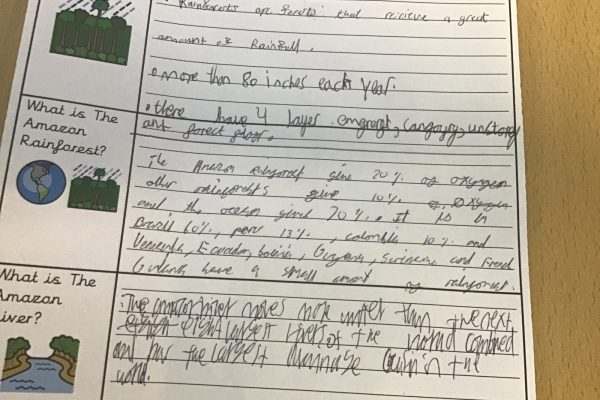 • Rainforests are forests that recieve a great
amount of Rainfall.
• more than 80 inches each year.
• there have 4 layer. emergent, canopy,
and forest floor.
What is The
Amazon
Rainforest?
The Amazon rainforest give 20% of oxygen
other rainforests give 10%
and the ocean gives 70%. It is in
Brazil 60%, peru 13%, colombia 10% and
Venezuela, Ecuador, bolivia, Guyana, Suriname and French
Guiana have a small amont of rainforest.
What is The
Amazon
River?
The amazon river moves more water than the next
eight largest rivers of the world combined
and has the largest drainage basin in the
world.